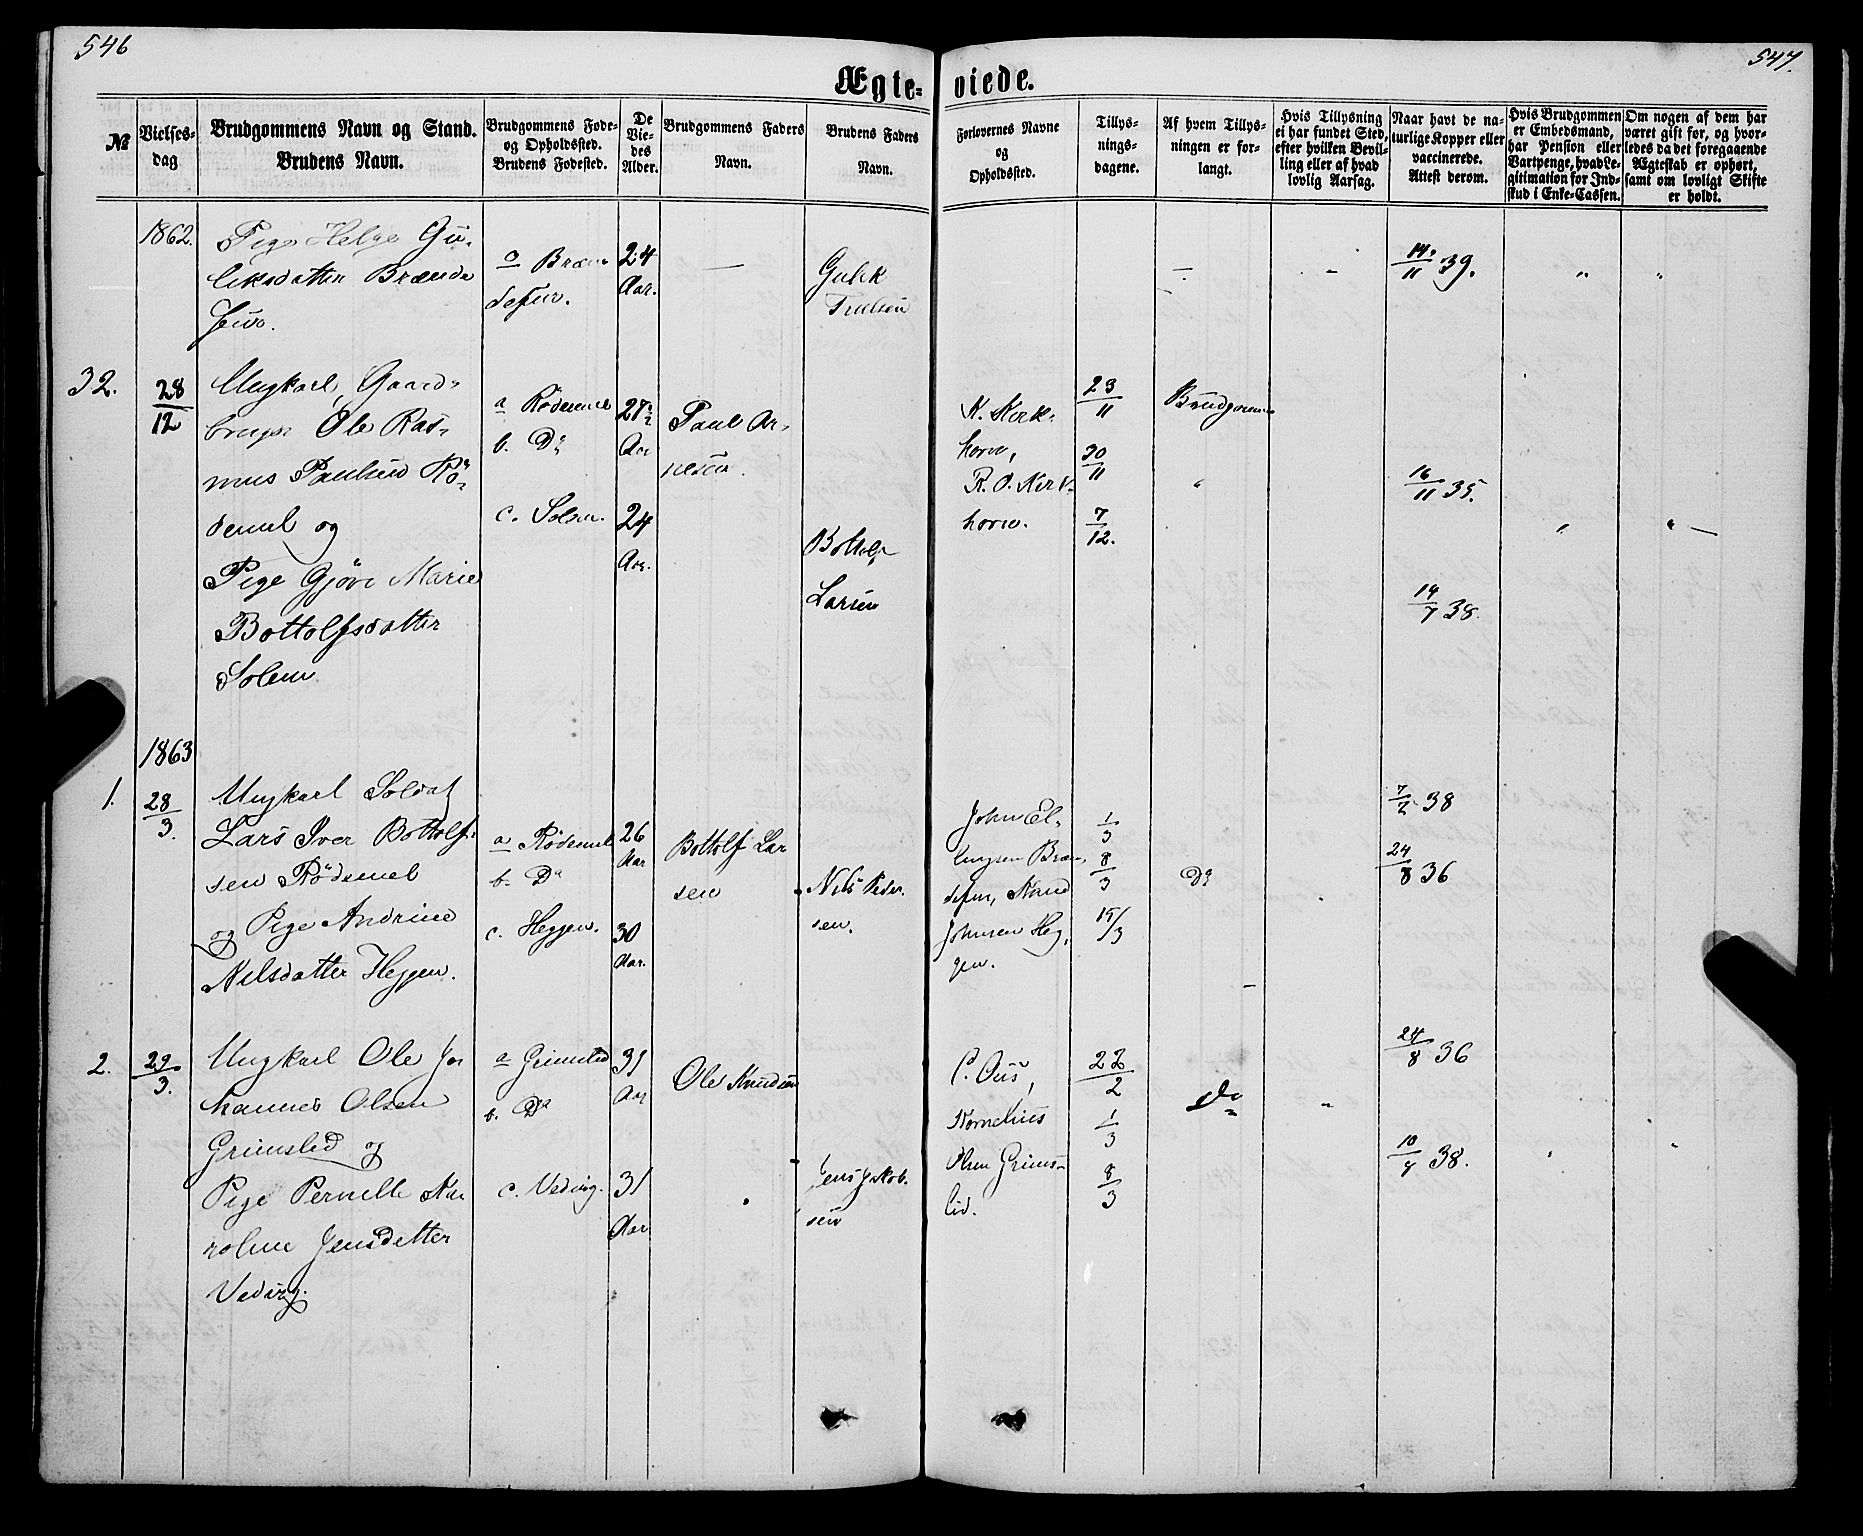 546
547.
Ægte-
viede.
№
Vielses-
dag
Brudgommens Navn og Stand.
Brudens Navn.
Brudgommens Føde-
og Opholdssted.
Brudens Fødested.
De
Vie-
des
Alder.
Brudgommens Faders
Navn.
Brudens Faders
Navn.
Forlovernes Navne
og
Opholdssted.
Tillys-
nings-
dagene.
Af hvem Tillys-
ningen er for-
langt.
Hvis Tillysning
ei har fundet Sted,
efter hvilken Bevil-
ling eller af hvad
lovlig Aarsag.
Naar havt de na-
turlige Kopper eller
vaccinerede.
Attest derom.
Hvis Brudgommen
er Embedsmand,
har Pension eller
Vartpenge, hvad Le-
gitimation for Ind-
skud i Enke-Cassen.
Om nogen af dem har
været gift før, og hvor-
ledes da det foregaaende
Ægteskab er ophørt,
samt om lovligt Skifte
er holdt.
1862.
Pige Helge Gu-
liksdatter
a
24
Aar.
—
Gulik
14/11 39.
32.
28/12
Ungkarl, Gaard-
bruger Ole Ras-
mus Paulsen Rö-
demel og
Pige Gjøri Marie
Bottolfsdatter
Solem
a Rødemel
b. Do
c. Solem.
27½
Aar
24
Aar.
Paul Ar-
nesen.
Bottolf
Larsen
K. Kirk-
horn,
R. O. Kirk-
horn.
23/11
30/11
7/12.
Brudgommen
16/11 35.
14/7 38.
1863
1.
28/3.
Ungkarl Soldat
Lars Iver Bottolf-
sen Rødemel
og Pige Andrine
Nilsdatter Heggen.
a Rødemel
b. Do
c. Heggen.
26
Aar
30
Aar.
Bottolf Lar
sen
Nils Peder-
sen.
John El-
lingsen
Johnsen Heg-
gen.
1/3
8/3
15/3
Do
7/2 38
24/8 36
2.
29/3.
Ungkarl Ole Jo
hannes Olsen
Grimsled og
Pige Pernille Ka
roline Jensdatter
Vedvig.
a Grimsled
b. Do
c. Vedvig.
31
Aar
31
Aar
Ole Knudsen
Jens Jakob-
sen
P. Ous,
Kornelius
Olsen Grims-
lid.
22/2
1/3
8/3
Do
24/8 36
10/9 38.